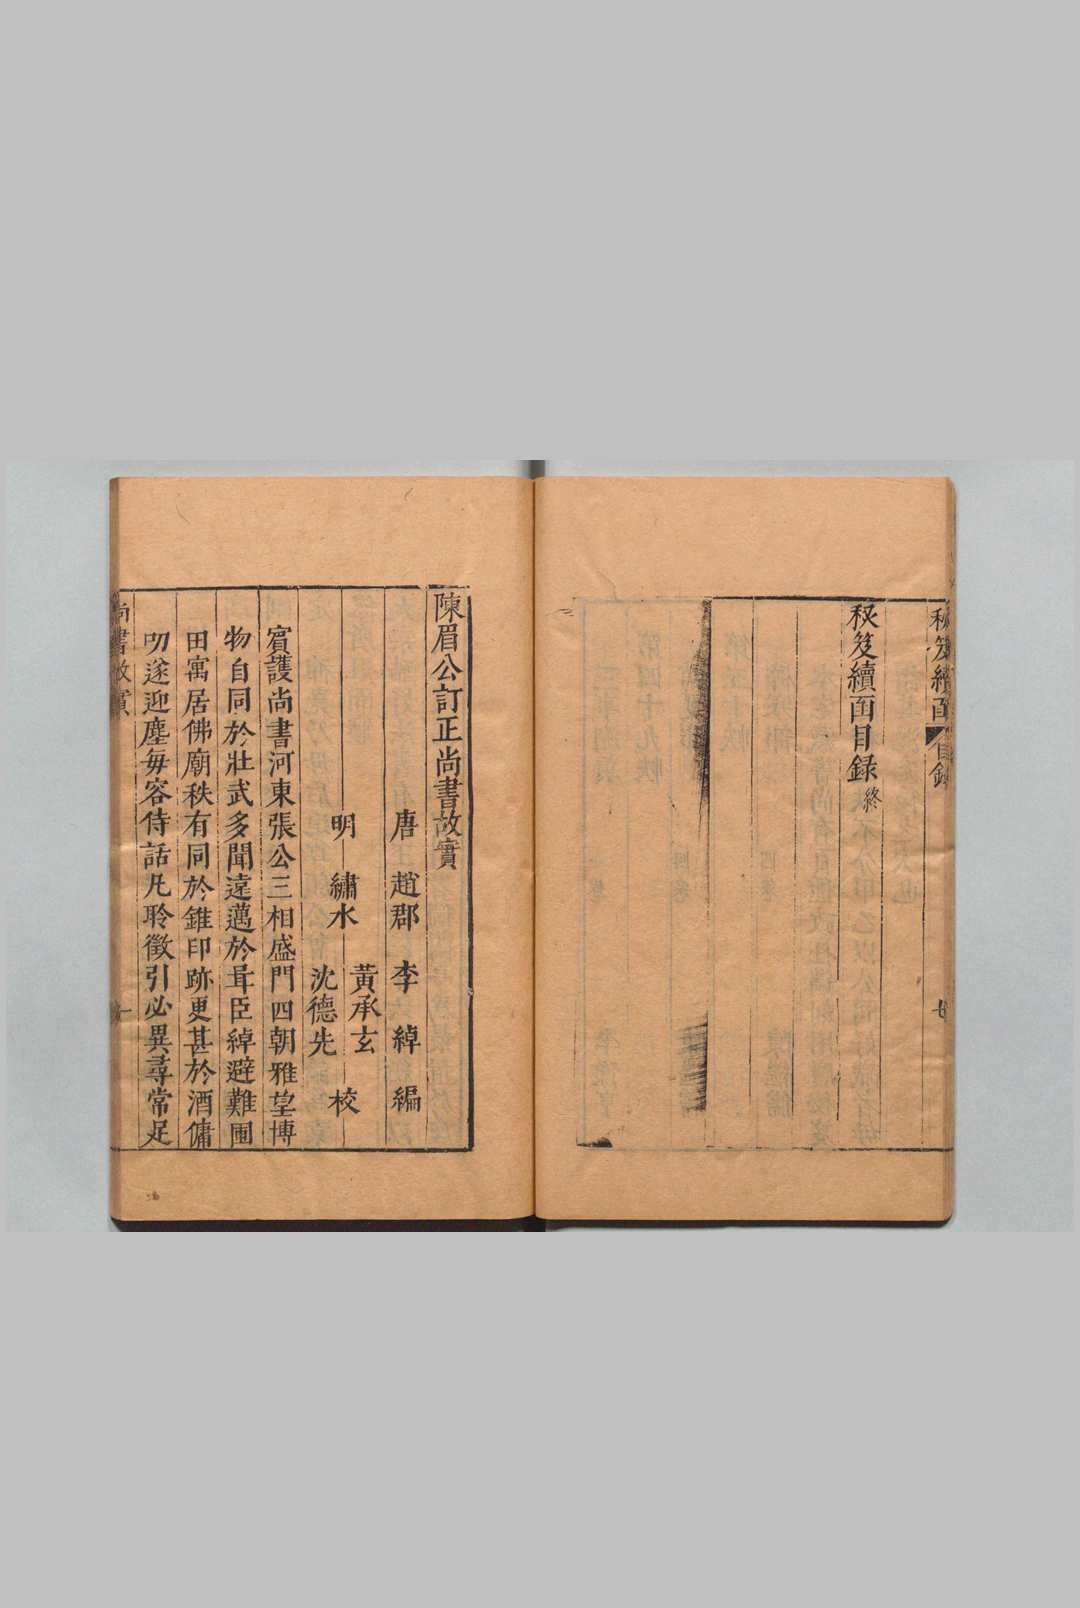 秘笈續函 目錄
七
秘笈續函目録終
陳眉公訂正尚書故實
唐 趙郡 李 綽 編
明 繡水 黃承玄 校
沈德先
賓護尚書河東張公三相盛門四朝雅望博
物自同於壯武多聞遠邁於咠臣綽避難圃
田寓居佛廟秩有同於錐印跡更甚於酒傭
叨遂迎塵每容侍話凡聆徵引必異尋常足
尚書故實
一